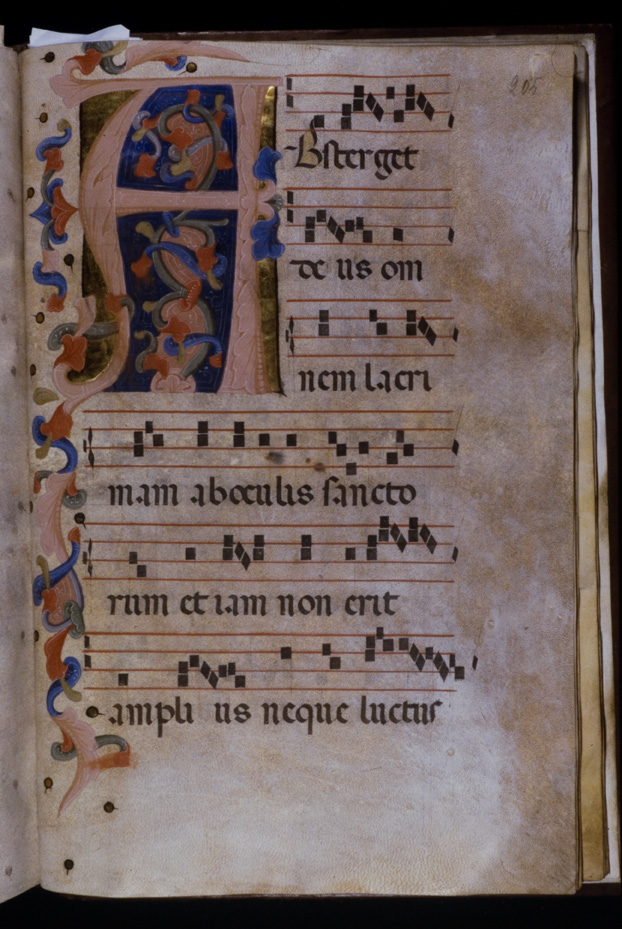 205
ABsterget
de us om
nem lacri
mam aboculis sancto
rum et iam non erit
ampli us neque luctus